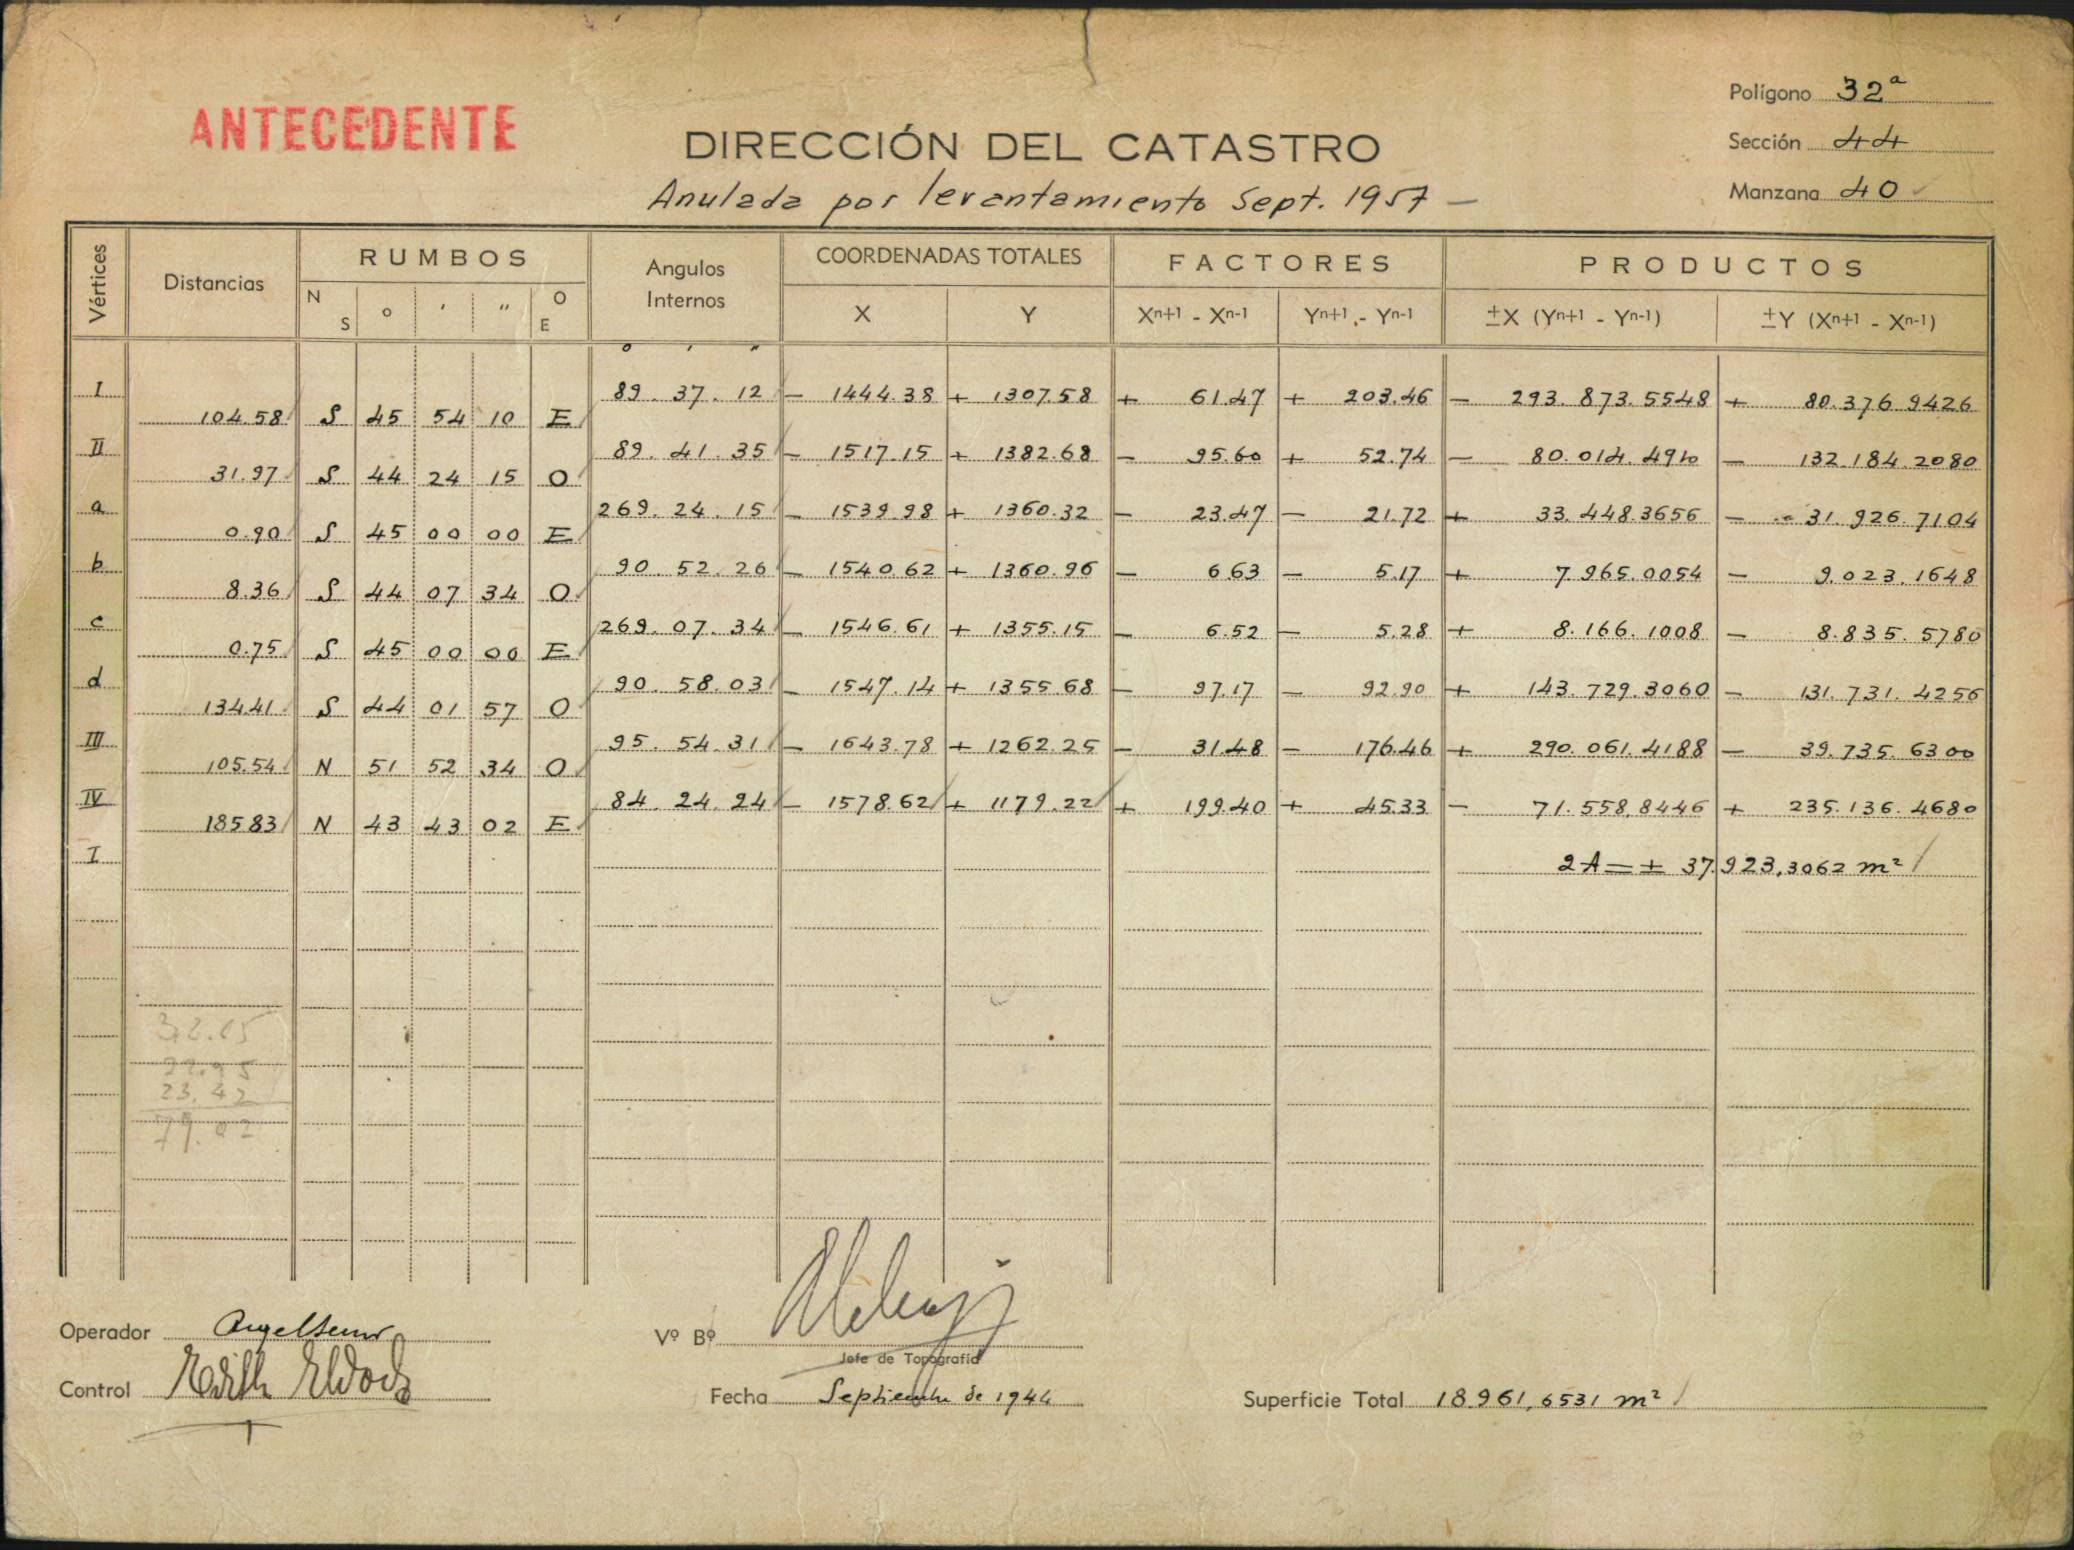 Polígono 32ª
ANTECEDENTE
DIRECCIÓN DEL CATASTRO
Sección 44
Anulada por levantamiento Sept. 1957 —
Manzana 40
Vértices Distancias RUMBOS Angulos Internos COORDENADAS TOTALES FACTORES PRODUCTOS
N S ° ' " O E X Y Xn+1 - Xn-1 Yn+1 - Yn-1 ±X (Yn+1 - Yn-1) ±Y (Xn+1 - Xn-1)
° ' "
I 89. 37. 12 — 1444.38 + 1307.58 + 61.47 + 203.46 — 293.873.5548 + 80.376.9426
104.58 S 45 54 10 E
II 89. 41. 35 — 1517.15 + 1382.68 — 95.60 + 52.74 — 80.014.4910 — 132.184.2080
31.97 S 44 24 15 O
a 269. 24. 15 — 1539.98 + 1360.32 — 23.47 — 21.72 + 33.448.3656 — 31.926.7104
0.90 S 45 00 00 E
b 90. 52. 26 — 1540.62 + 1360.96 — 6.63 — 5.17 + 7.965.0054 — 9.023.1648
8.36 S 44 07 34 O
c 269. 07. 34 — 1546.61 + 1355.15 — 6.52 — 5.28 + 8.166.1008 — 8.835.5780
0.75 S 45 00 00 E
d 90. 58. 03 — 1547.14 + 1355.68 — 97.17 — 92.90 + 143.729.3060 — 131.731.4256
134.41 S 44 01 57 O
III 95. 54. 31 — 1643.78 + 1262.25 — 31.48 — 176.46 + 290.061.4188 — 39.735.6300
105.54 N 51 52 34 O
IV 84. 24. 24 — 1578.62 + 1179.22 + 199.40 + 45.33 — 71.558.8446 + 235.136.4680
185.83 N 43 43 02 E
I 2A = ± 37.923,3062 m²
23.42
79.02
Operador
Vº Bº
Jefe de Topografía
Control Edith
Fecha Septiembre de 1944
Superficie Total 18.961,6531 m²